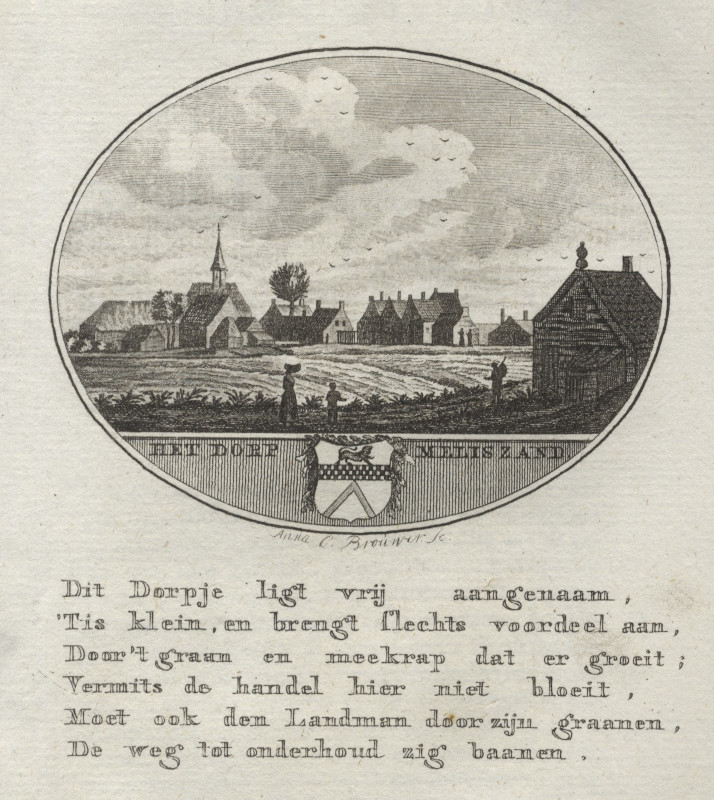 HET DORP MELISZAND
Anna C. Brouwer Sc.
Dit Dorpje ligt vrij aangenaam,
'Tis klein, en brengt slechts voordeel aan,
Door't graan en meekrap dat er groeit;
Vermits de handel hier niet bloeit,
Moet ook den Landman door zijn graanen,
De weg tot onderhoud zig baanen.